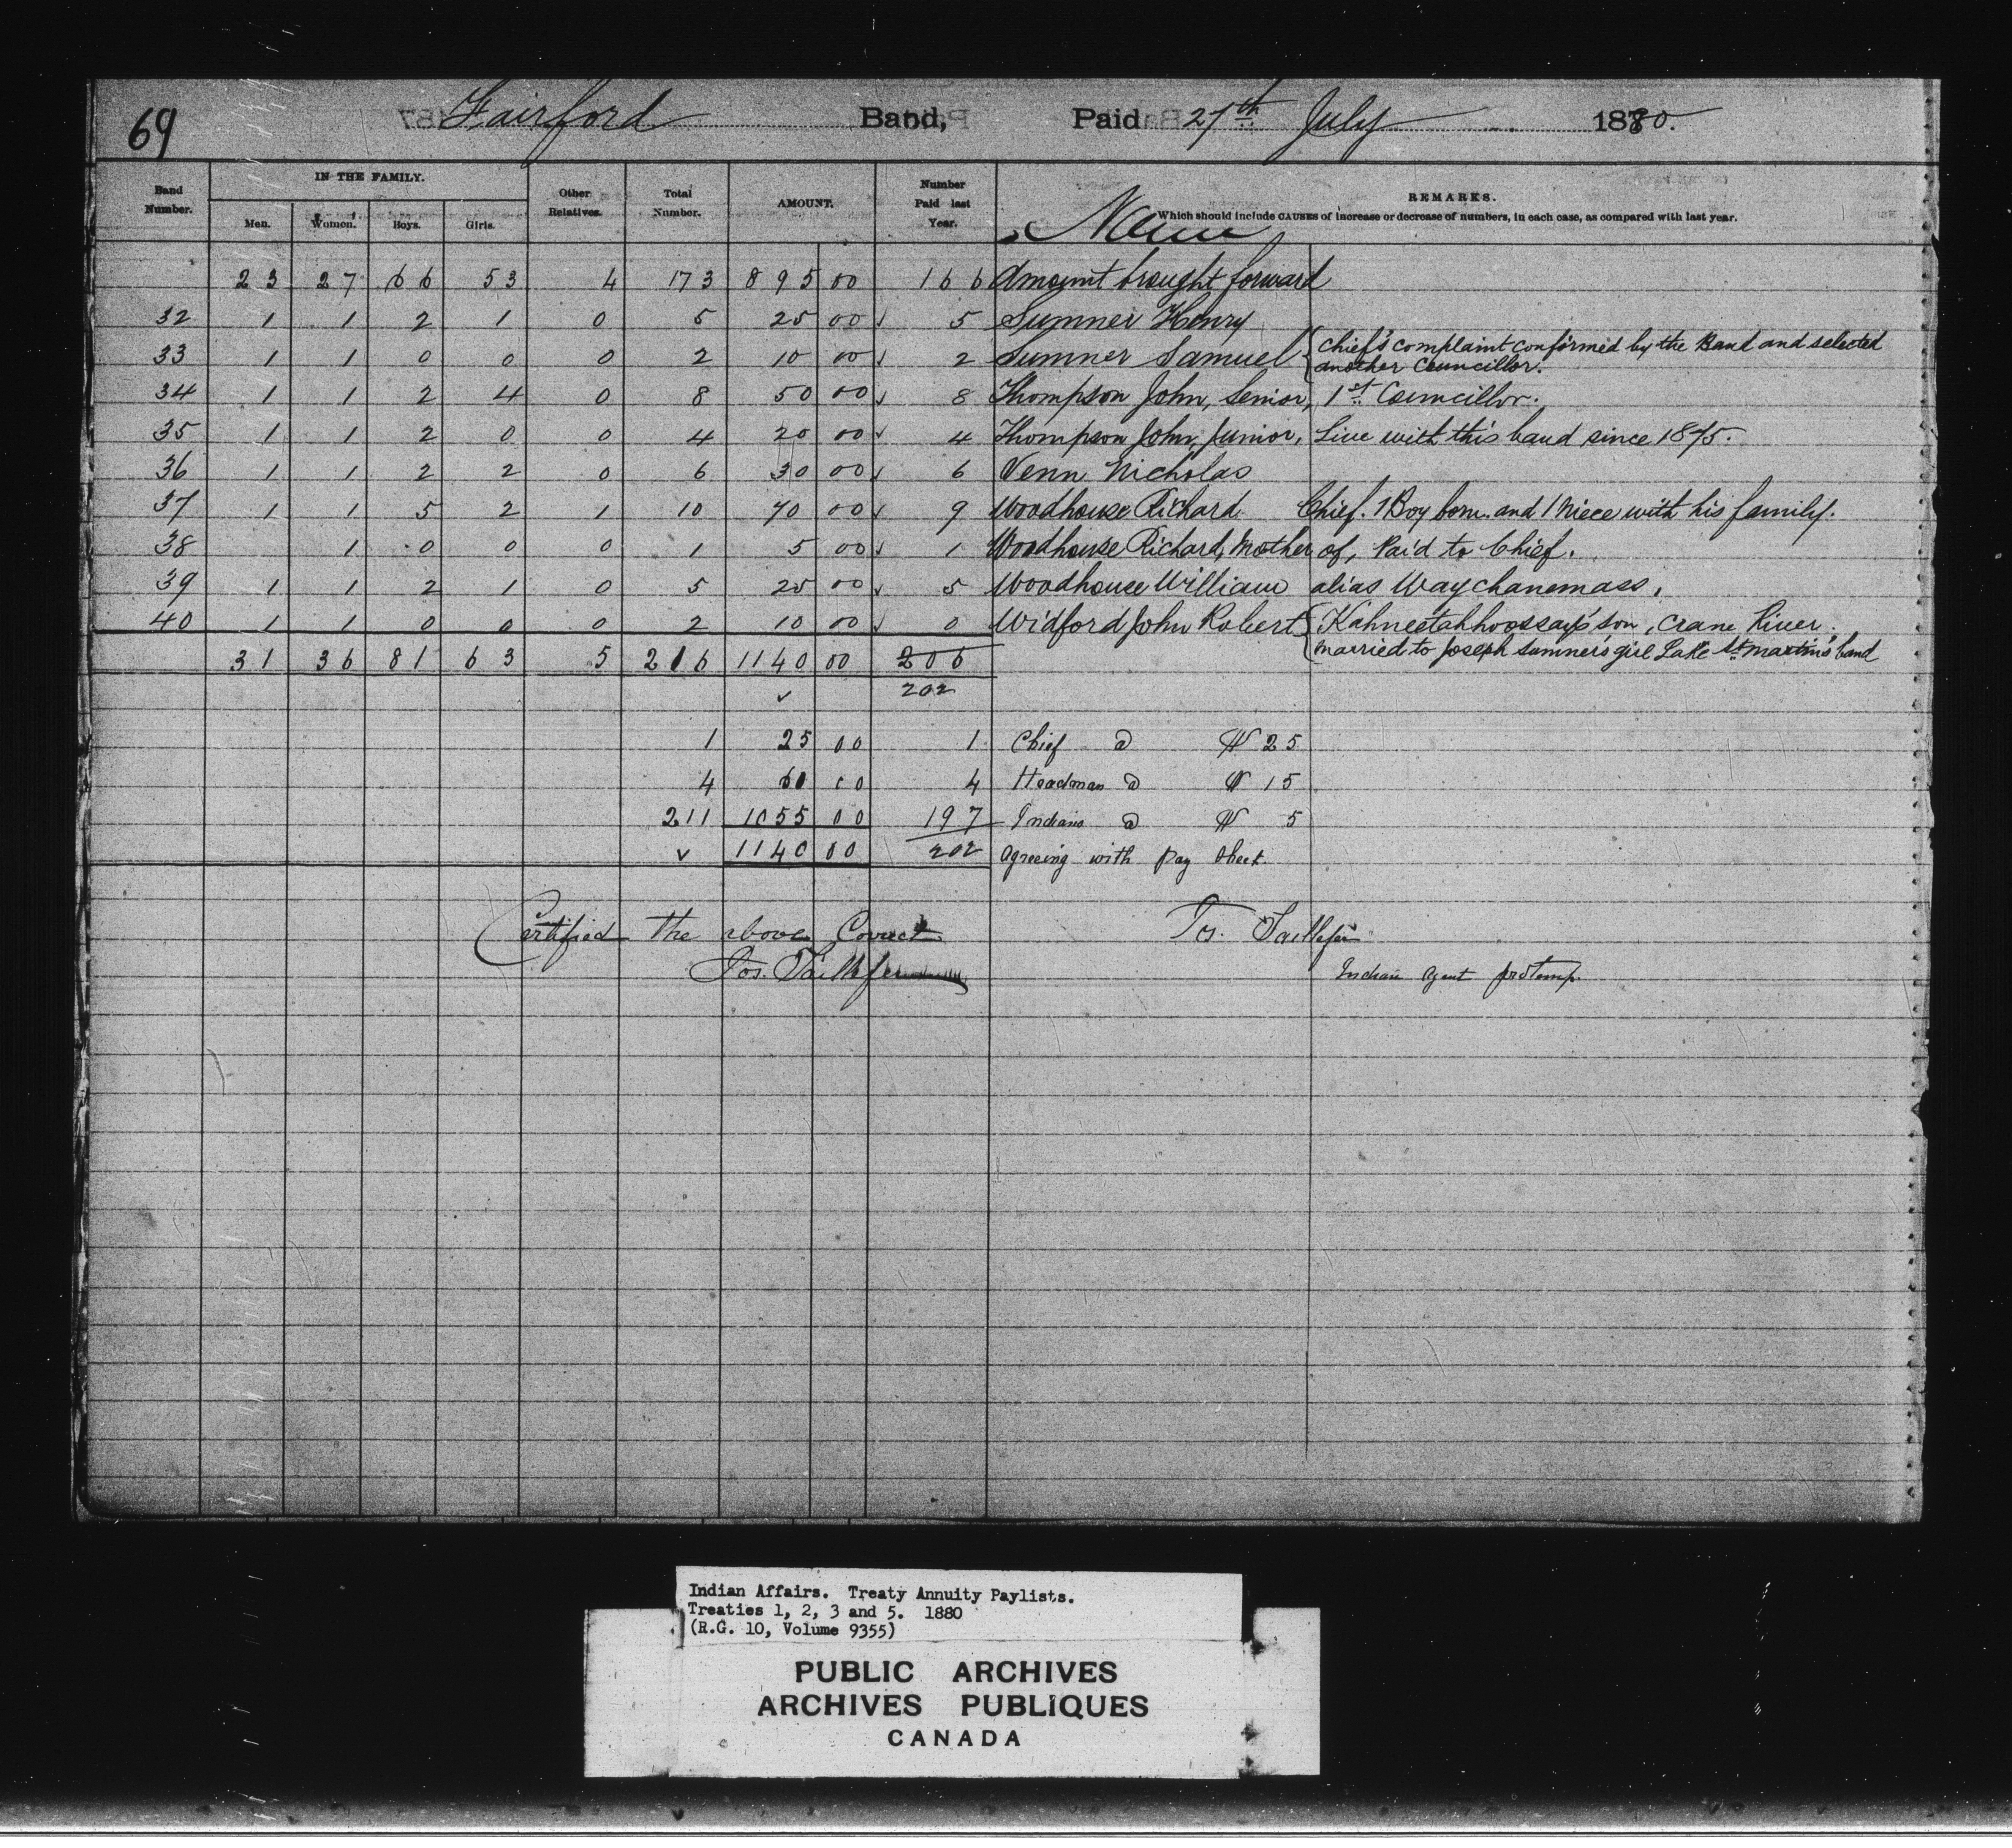 69 Fairford Band, Paid 27th July 1880.
Band Number. IN THE FAMILY. Men. Women. Boys. Girls. Other Relatives. Total Number. AMOUNT. Number Paid last Year. Name REMARKS.
Which should include CAUSES of increase or decrease of numbers, in each case, as compared with last year.
23 27 66 53 4 173 895 00 166 Amount brought forward
32 1 1 2 1 0 5 25 00 ✓ 5 Sumner Henry
33 1 1 0 0 0 2 10 00 ✓ 2 Sumner Samuel { Chief's complaint confirmed by the Band and selected
another Councillor.
34 1 1 2 4 0 8 50 00 ✓ 8 Thompson John, Senior, 1st Councillor.
35 1 1 2 0 0 4 20 00 ✓ 4 Thompson John, Junior, Live with this band since 1875.
36 1 1 2 2 0 6 30 00 ✓ 6 Venn Nicholas
37 1 1 5 2 1 10 70 00 ✓ 9 Woodhouse Richard Chief. 1 Boy born. and 1 Niece with his family.
38 1 0 0 0 1 5 00 ✓ 1 Woodhouse Richard, Mother of, Paid to Chief.
39 1 1 2 1 0 5 25 00 ✓ 5 Woodhouse William alias Waychanemass.
40 1 1 0 0 0 2 10 00 ✓ 0 Widford John Robert { Kahneetahhoossay's son, Crane River.
married to Joseph Sumner's girl Lake St. Martin's band
31 36 81 63 5 216 1140 00 206
✓ 202
1 25 00 1 Chief @ $ 25
4 60 00 4 Headman @ $ 15
211 1055 00 197 Indians @ $ 5
✓ 1140 00 202 Agreeing with pay sheet.
Certified the above Correct Jos. Taillefer
Jos. Taillefer Indian Agent protemp.
Indian Affairs. Treaty Annuity Paylists.
Treaties 1, 2, 3 and 5. 1880
(R.G. 10, Volume 9355)
PUBLIC ARCHIVES
ARCHIVES PUBLIQUES
CANADA